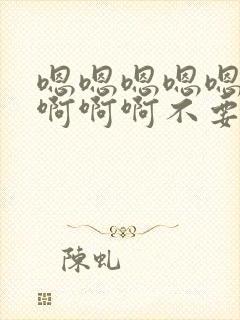 嗯嗯嗯嗯嗯
啊啊啊不要
陳虬